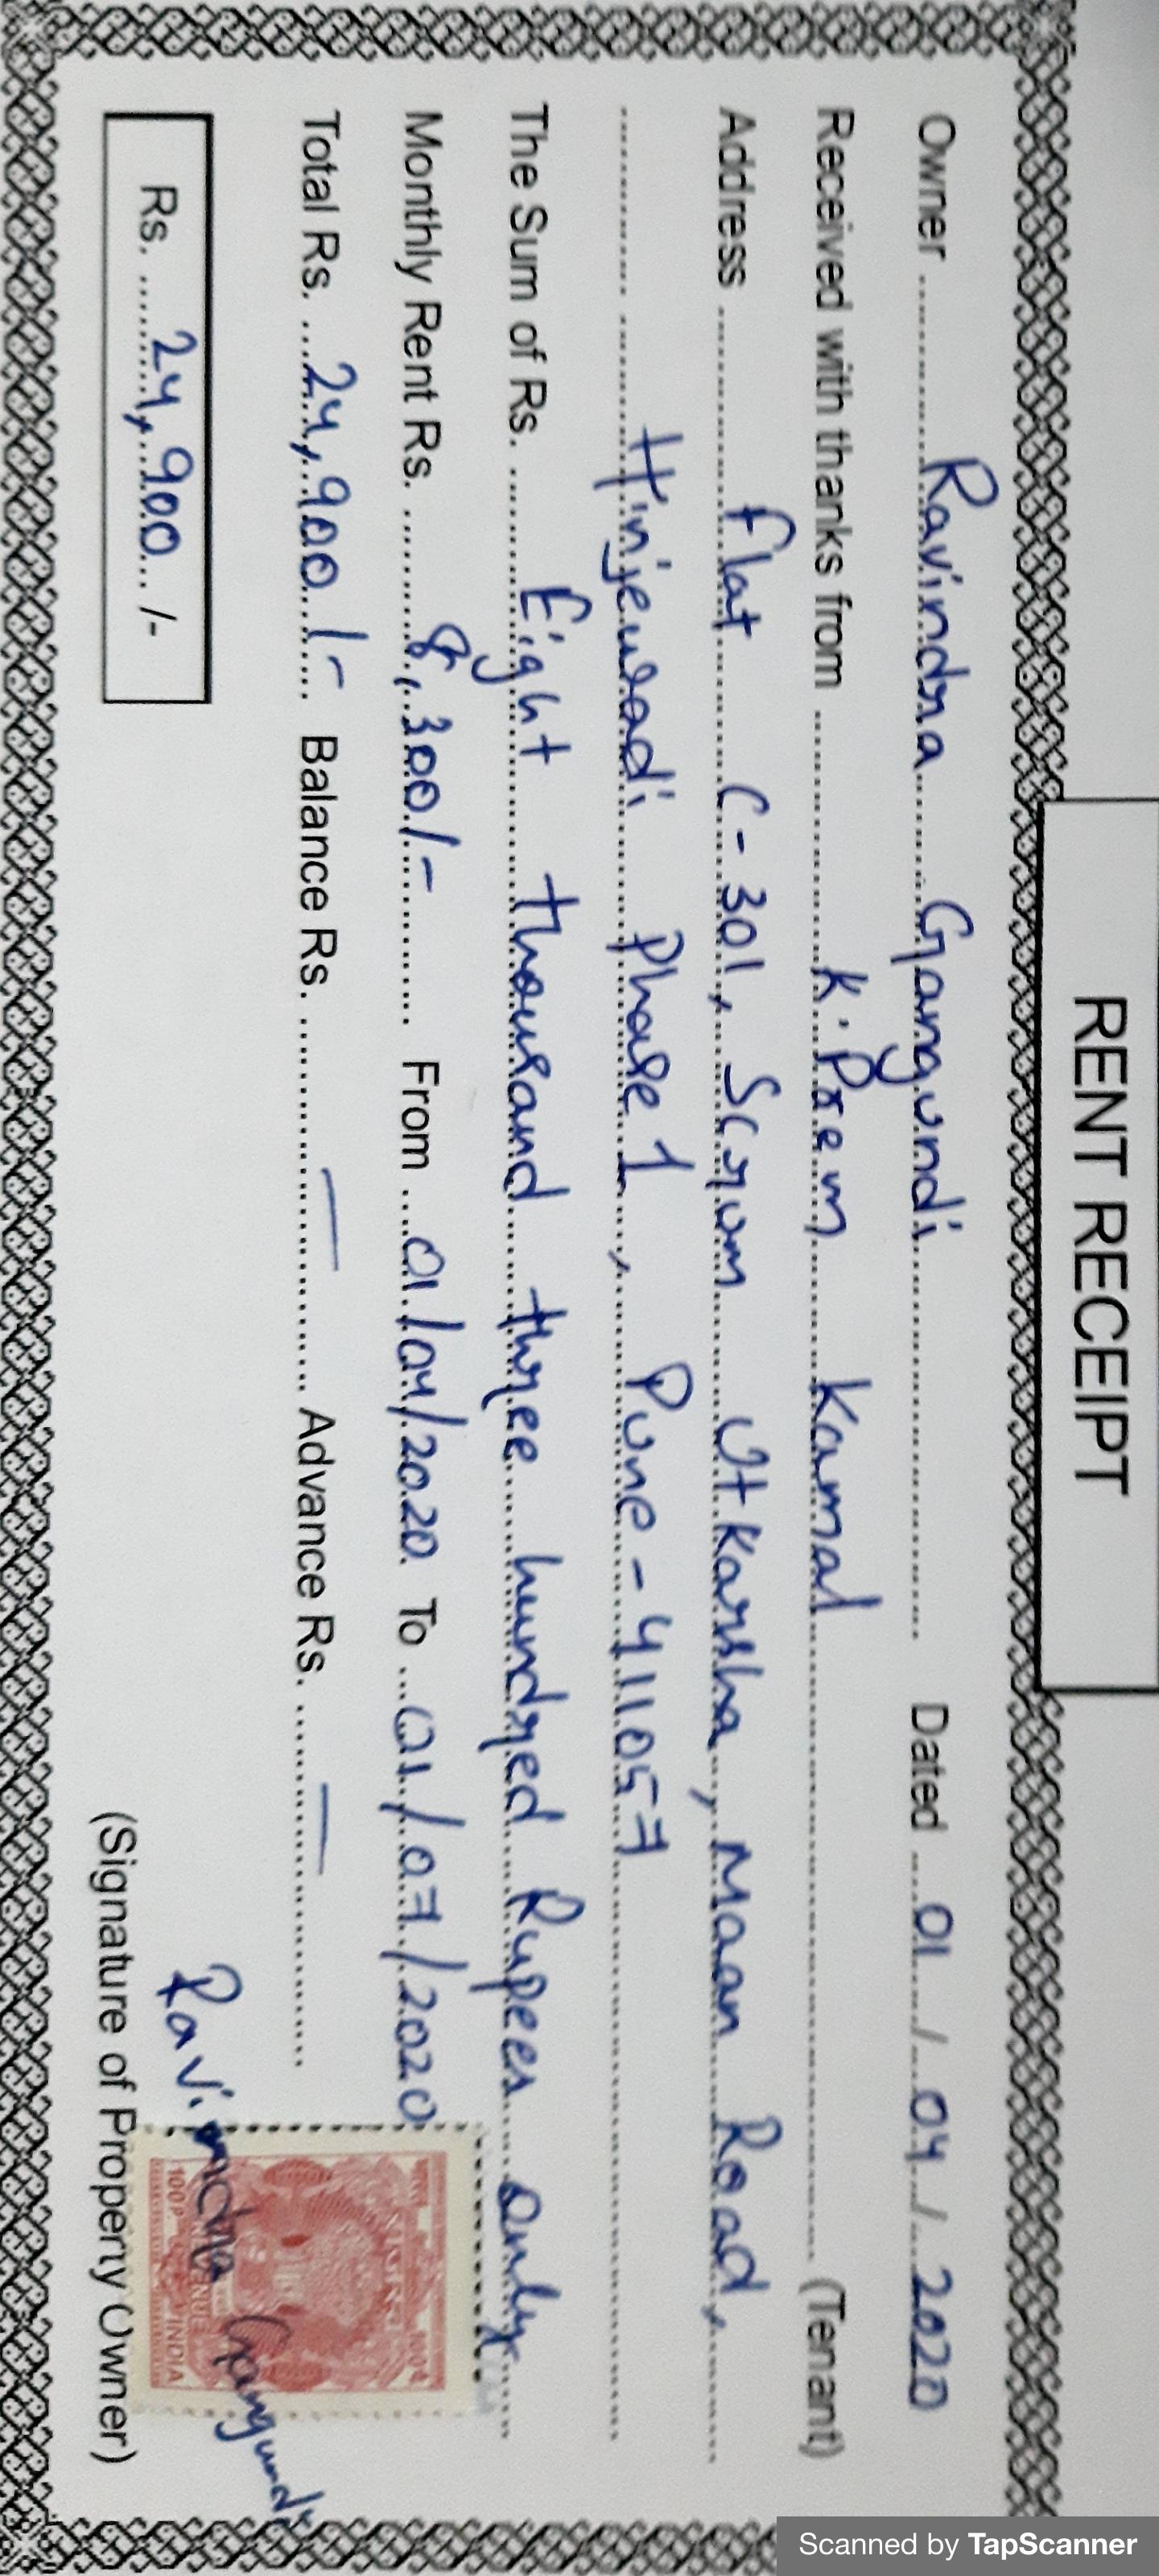 RENT RECEIPT
Owner ............ Ravindra Gangundi ............ Dated 01 / 04 / 2020
Received with thanks from ............ K. Prem Kamal ............ (Tenant)
Address ............ Flat C-301, Scrum Utkarsha, Maan Road,
............ Hinjewadi Phase 1, Pune - 411057
The Sum of Rs. ............ Eight thousand three hundred Rupees only
Monthly Rent Rs. ............ 8,300/- ............ From 01/04/2020 To 01/07/2020
Total Rs. 24,900/- Balance Rs. ............ — ............ Advance Rs. ............ — ............
Rs. 24,900 /-
Ravindra Gangundi
100P REVENUE INDIA
(Signature of Property Owner)
Scanned by TapScanner